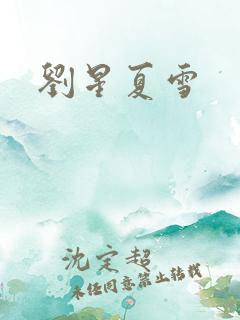 劉星夏雪
沈定超
未经同意禁止转载